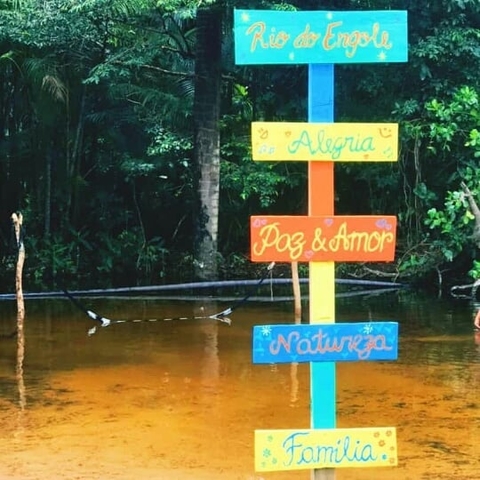 Rio do Engole
Alegria
Paz & Amor
Natureza
Família